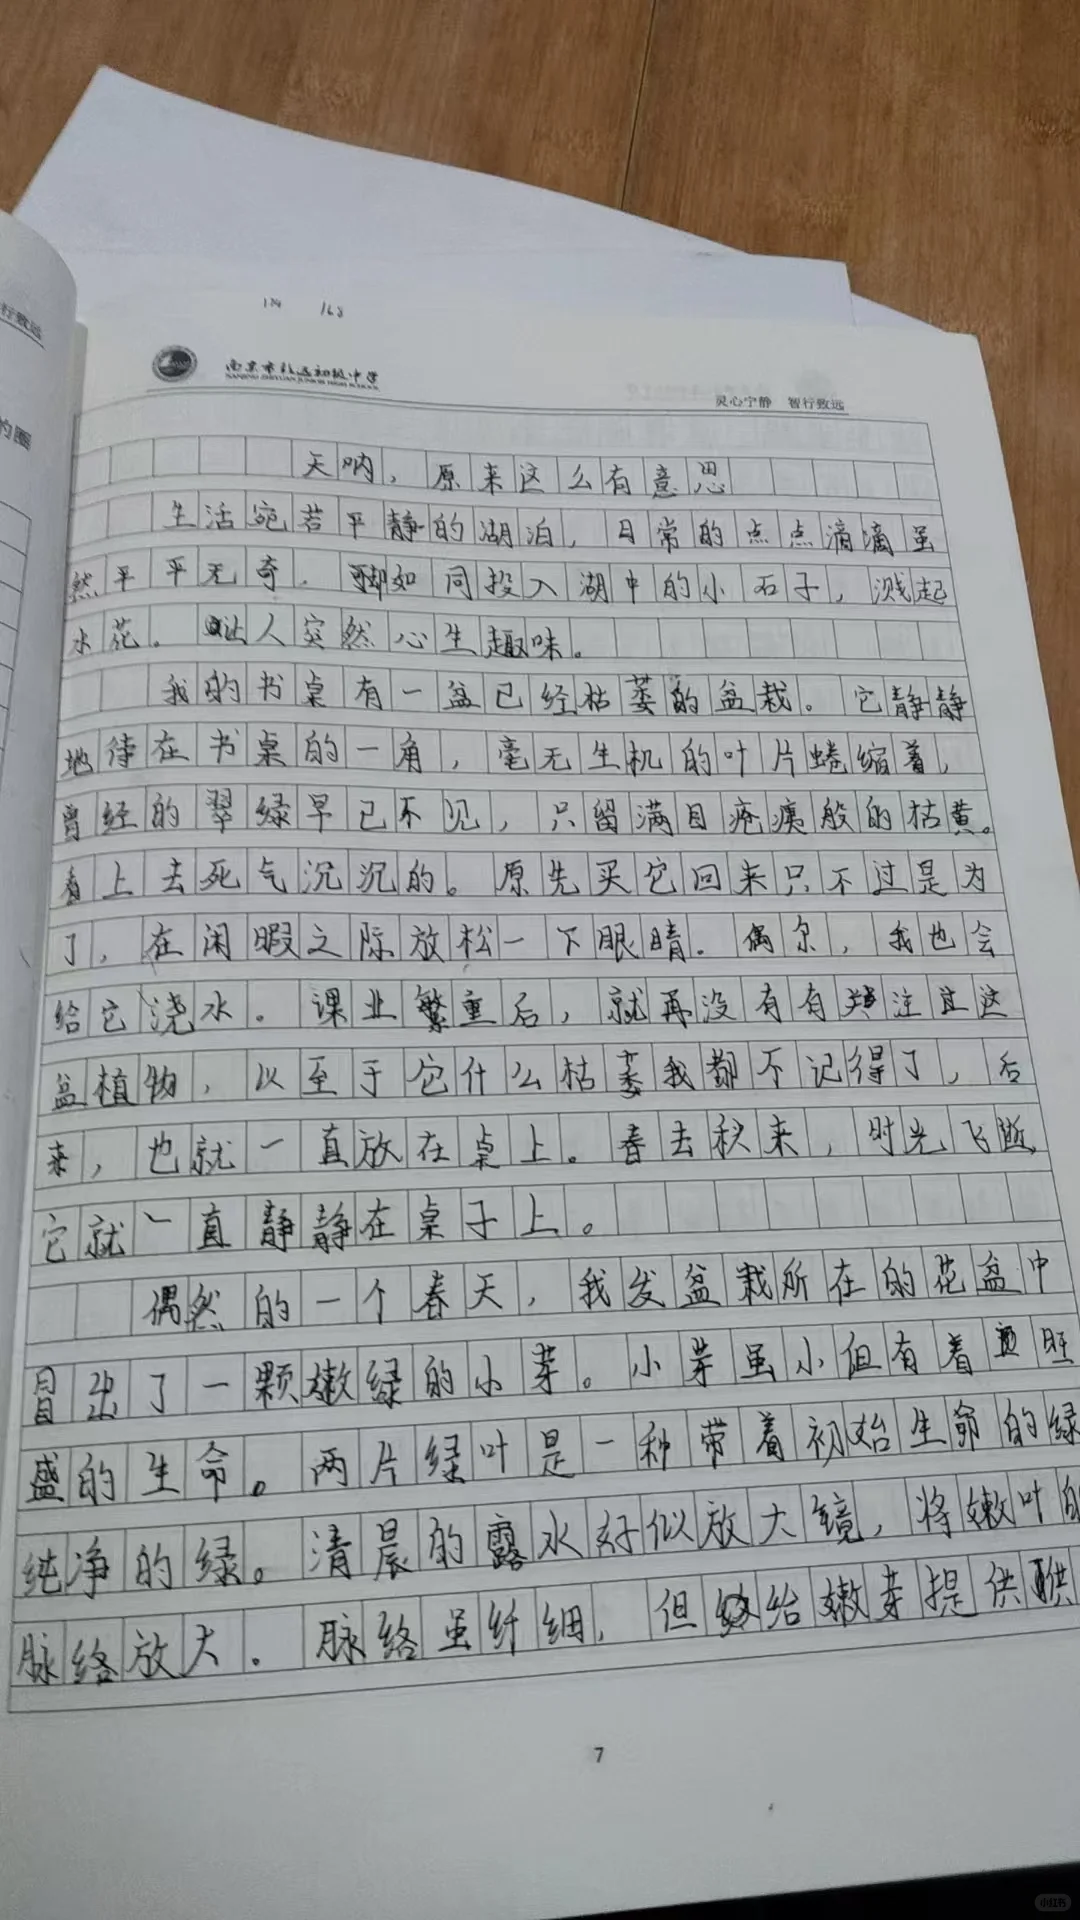 行致远
的圈
168
南京市致远初级中学
NANJING ZHIYUAN JUNIOR HIGH SCHOOL
灵心宁静 智行致远
天呐,原来这么有意思
生活宛若平静的湖泊,日常的点点滴滴虽
然平平无奇.却如同投入湖中的小石子,溅起
水花。让人突然心生趣味。
我的书桌有一盆已经枯萎的盆栽。它静静
地待在书桌的一角,毫无生机的叶片蜷缩着,
曾经的翠绿早已不见,只留满目疮痍般的枯黄。
看上去死气沉沉的。原先买它回来只不过是为
了,在闲暇之际放松一下眼睛.偶尔,我也会
给它浇水.课业繁重后,就再没有有关注过这
盆植物,以至于它什么枯萎我都不记得了,后
来,也就一直放在桌上。春去秋来,时光飞逝,
它就一直静静在桌子上。
偶然的一个春天,我发盆栽所在的花盆中
冒出了一颗嫩绿的小芽。小芽虽小但有着旺
盛的生命。两片绿叶是一种带着初始生命的绿
纯净的绿。清晨的露水好似放大镜,将嫩叶的
脉络放大.脉络虽纤细,但给嫩芽提供
7
小红书